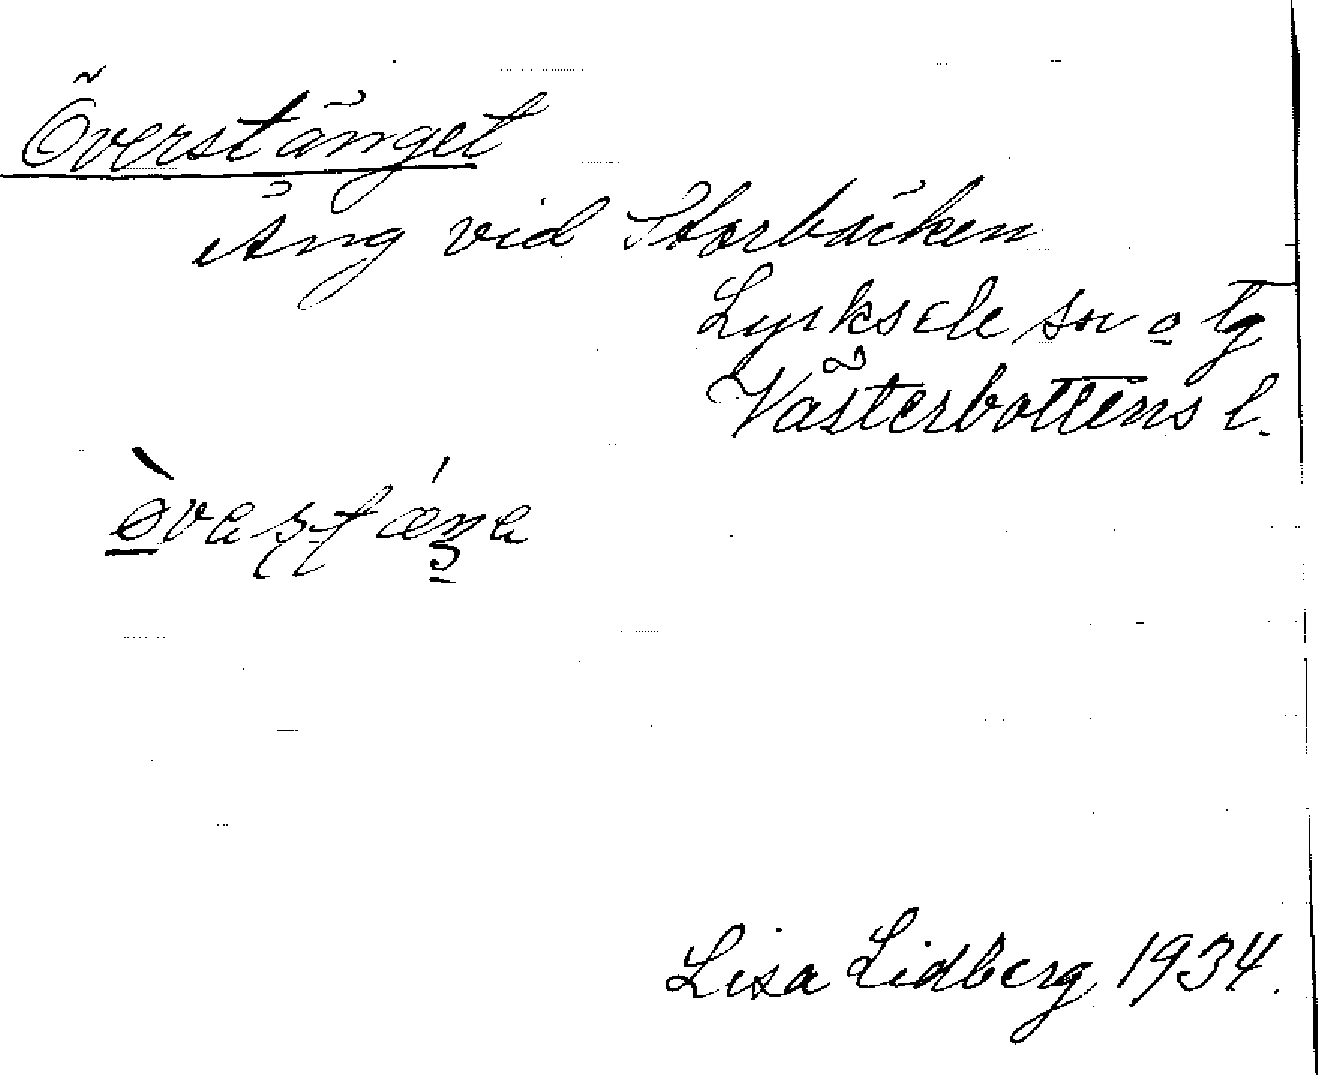 Överstänget
Äng vid Storbäcken
Lycksele sn o tg
Västerbottens l.
Lisa Lidberg 1934.